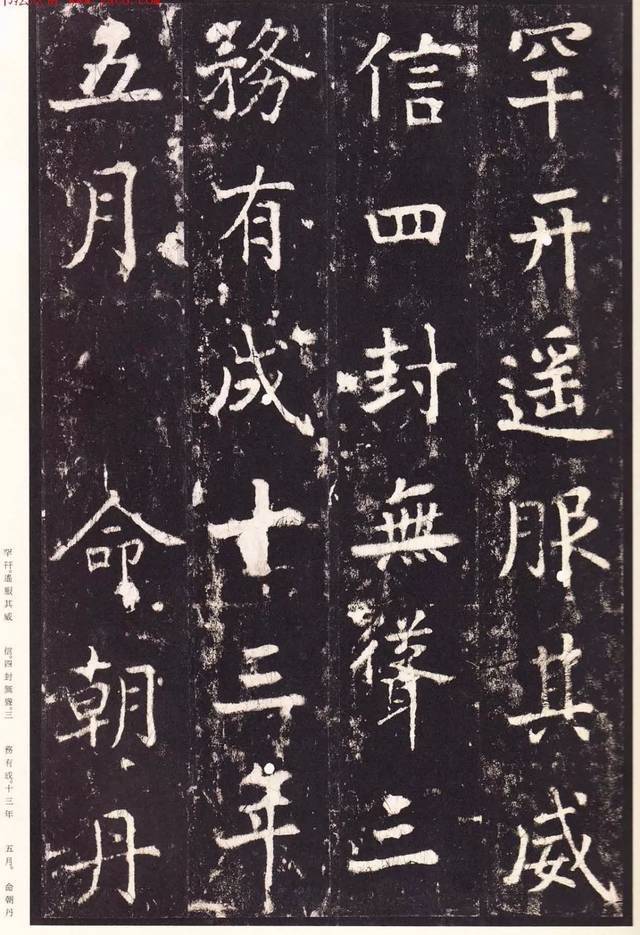 罕幵遥服其威
信四封無聳三
務有成十三年
五月 命朝丹
罕幵。遙服其威 信。四封無聳。三 務有成。十三年 五月。 命朝丹